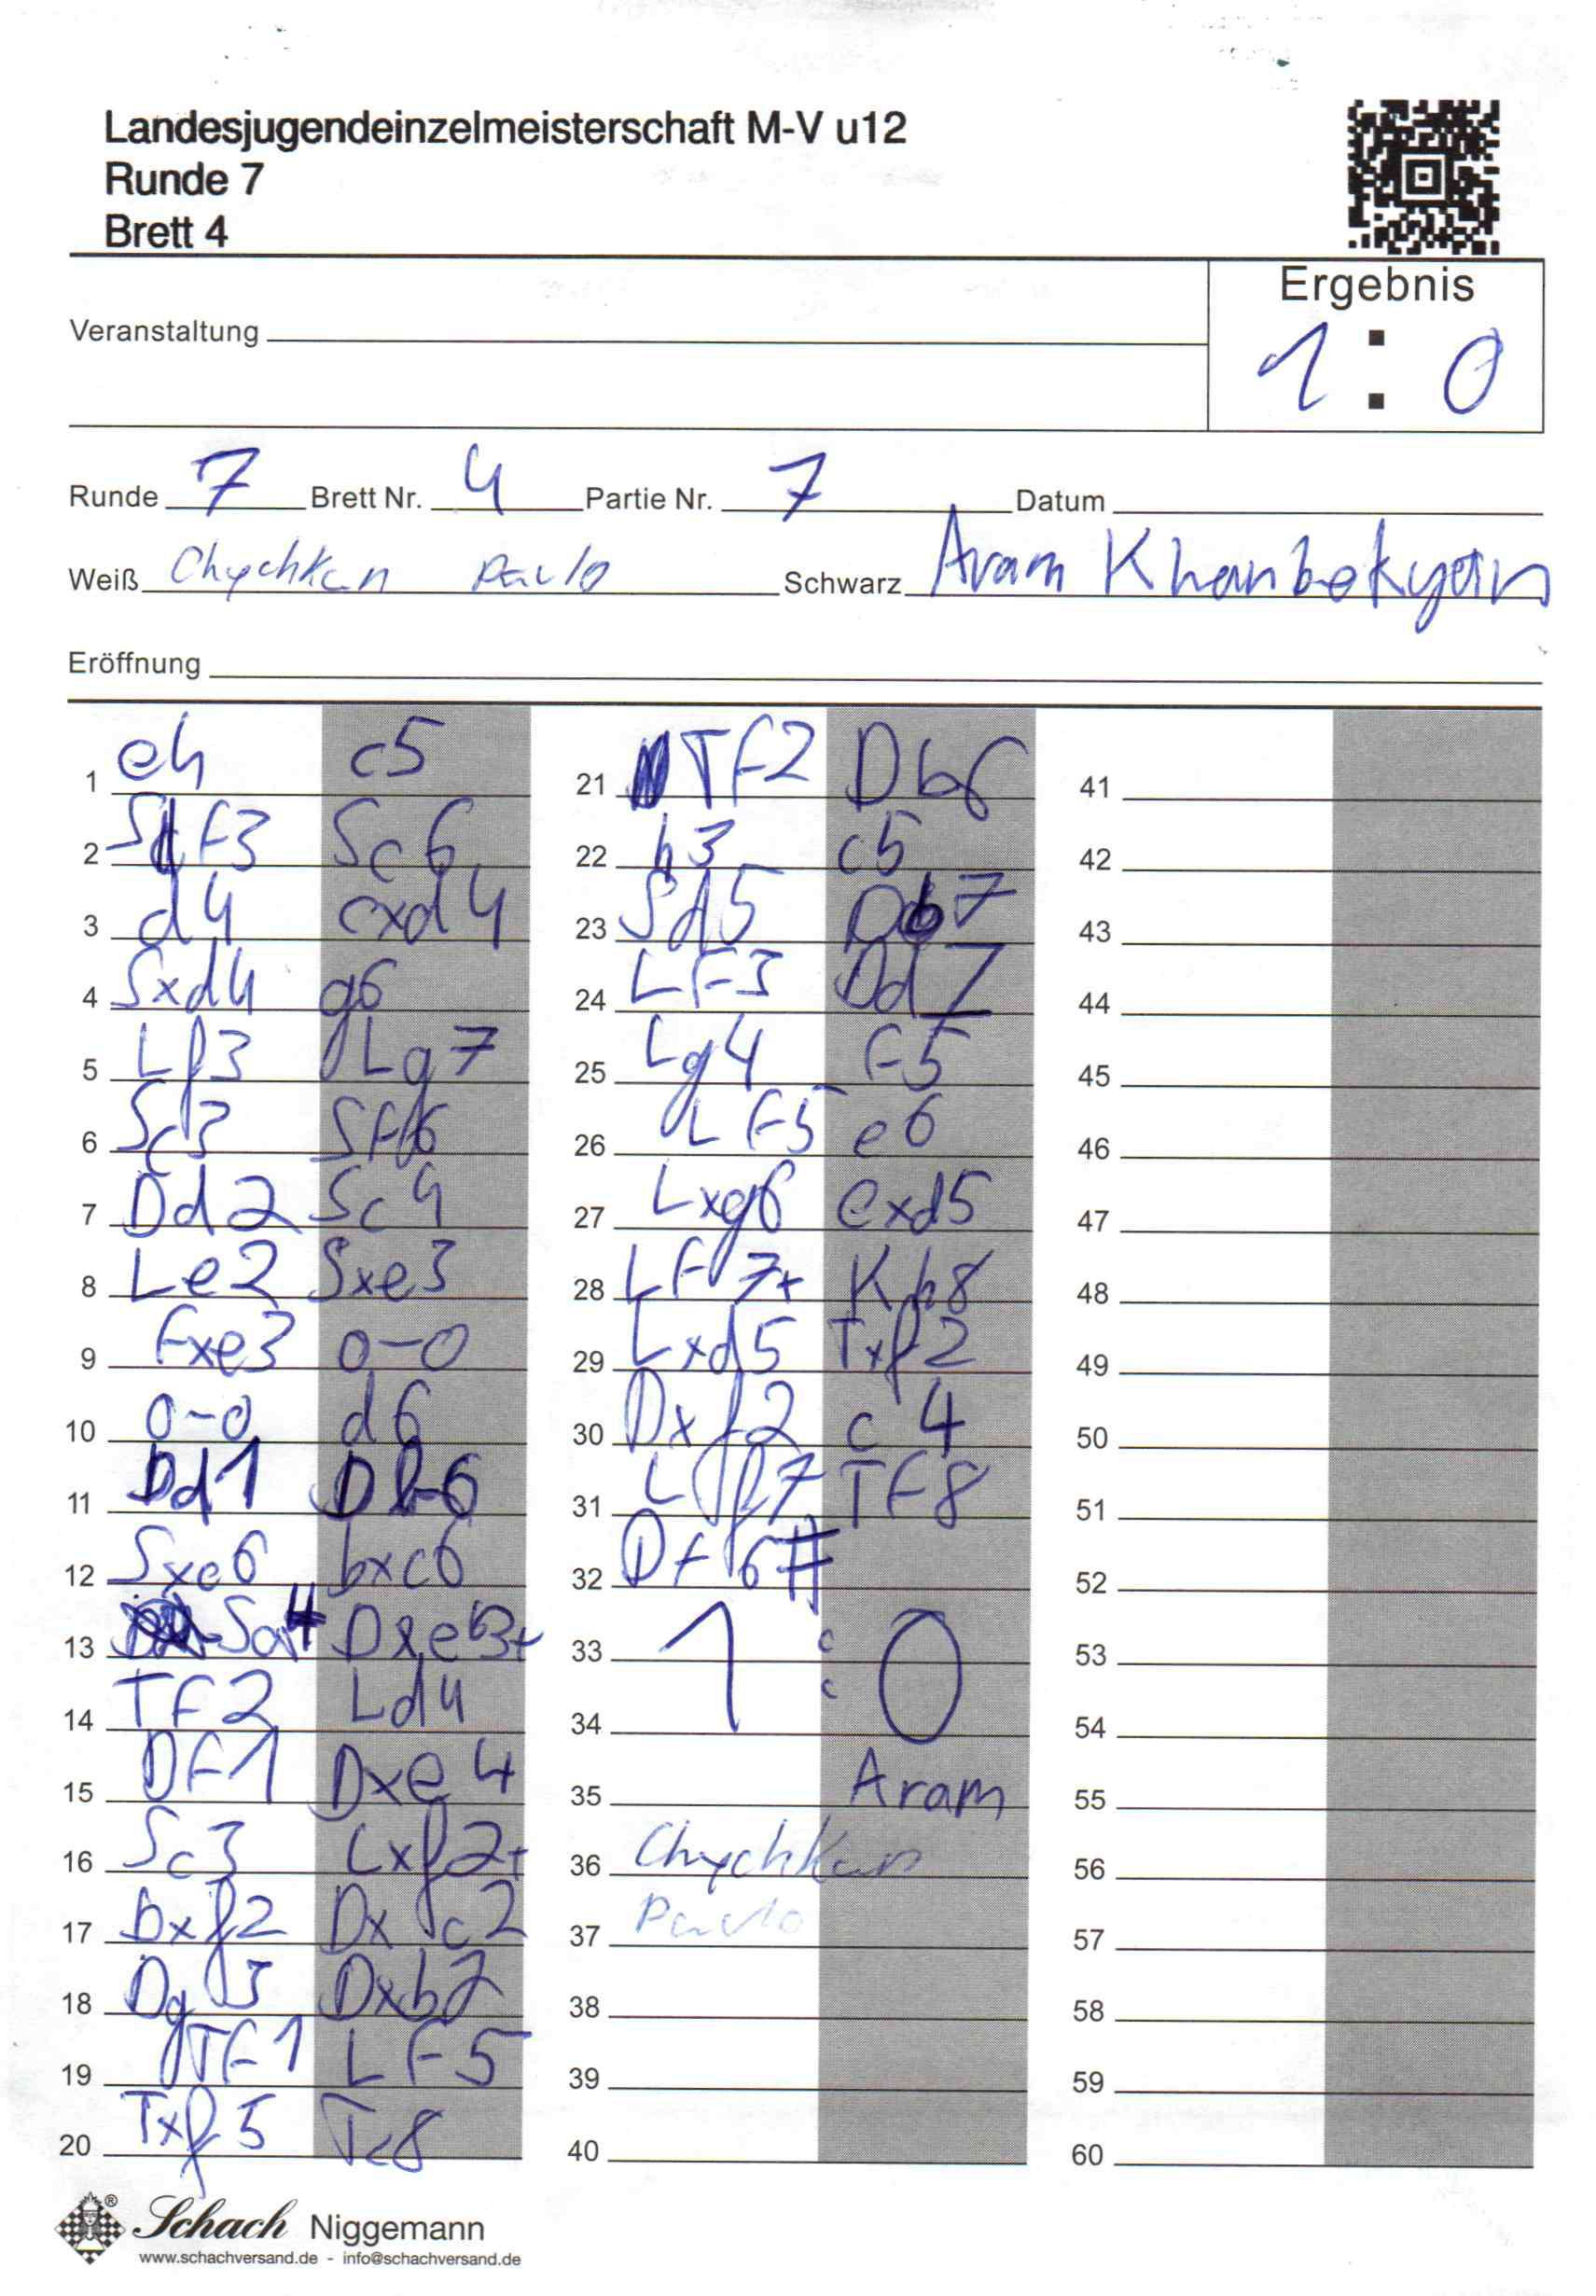 Landesjugendeinzelmeisterschaft M-V u12
Runde 7
Brett 4
Ergebnis
1 : 0
Veranstaltung
Runde 7 Brett Nr. 4 Partie Nr. 7 Datum
Weiß Chychkan Pavlo Schwarz Aram Khanbekyan
Eröffnung
1 e4 c5
2 Sf3 Sc6
3 d4 cxd4
4 Sxd4 g6
5 Lf3 Lg7
6 Sc3 Sf6
7 Dd2 Sc4
8 Le2 Sxe3
9 Fxe3 0-0
10 0-0 d6
11 Dd1 Db6
12 Sxc6 bxc6
13 Sa4 Dxe3+
14 TF2 Ld4
15 DF1 Dxe4
16 Sc3 Lxf2+
17 Dxf2 Dxc2
18 Dg3 Dxb2
19 TF1 LF5
20 Txf5 Tc8
21 TF2 Db6
22 h3 c5
23 Sd5 Db7
24 LF3 Dd7
25 Lg4 F5
26 LF5 e6
27 Lxg6 exd5
28 LF7+ Kh8
29 Lxd5 Txf2
30 Dxf2 c4
31 Lf7 TF8
32 Df6#
33 1 : 0
34
35 Aram
36 Chychkan
37 Pavlo
38
39
40
41
42
43
44
45
46
47
48
49
50
51
52
53
54
55
56
57
58
59
60
Schach Niggemann
www.schachversand.de - info@schachversand.de